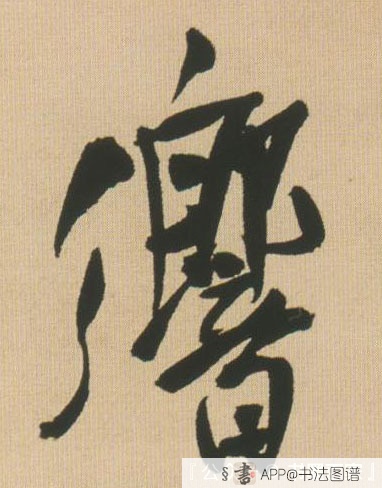 響
§書 APP@书法图谱